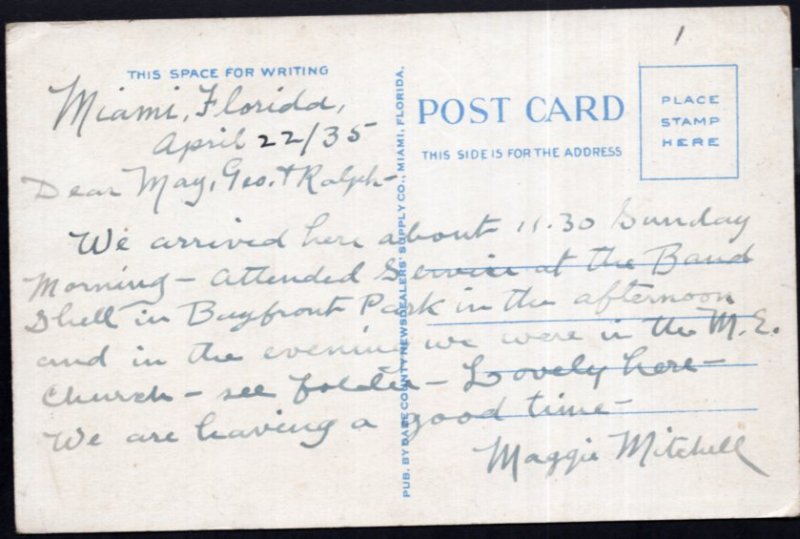 1
THIS SPACE FOR WRITING
Miami, Florida,
April 22/35
Dear May, Geo. & Ralph-
We arrived here about 11.30 Sunday
Morning - attended Service at the Band
Shell in Bayfront Park in the afternoon
and in the evening we were in the M.E.
Church - see folder - Lovely here -
We are having a good time -
Maggie Mitchell
PUB. BY DADE COUNTY NEWSDEALERS' SUPPLY CO., MIAMI, FLORIDA.
POST CARD
THIS SIDE IS FOR THE ADDRESS
PLACE
STAMP
HERE